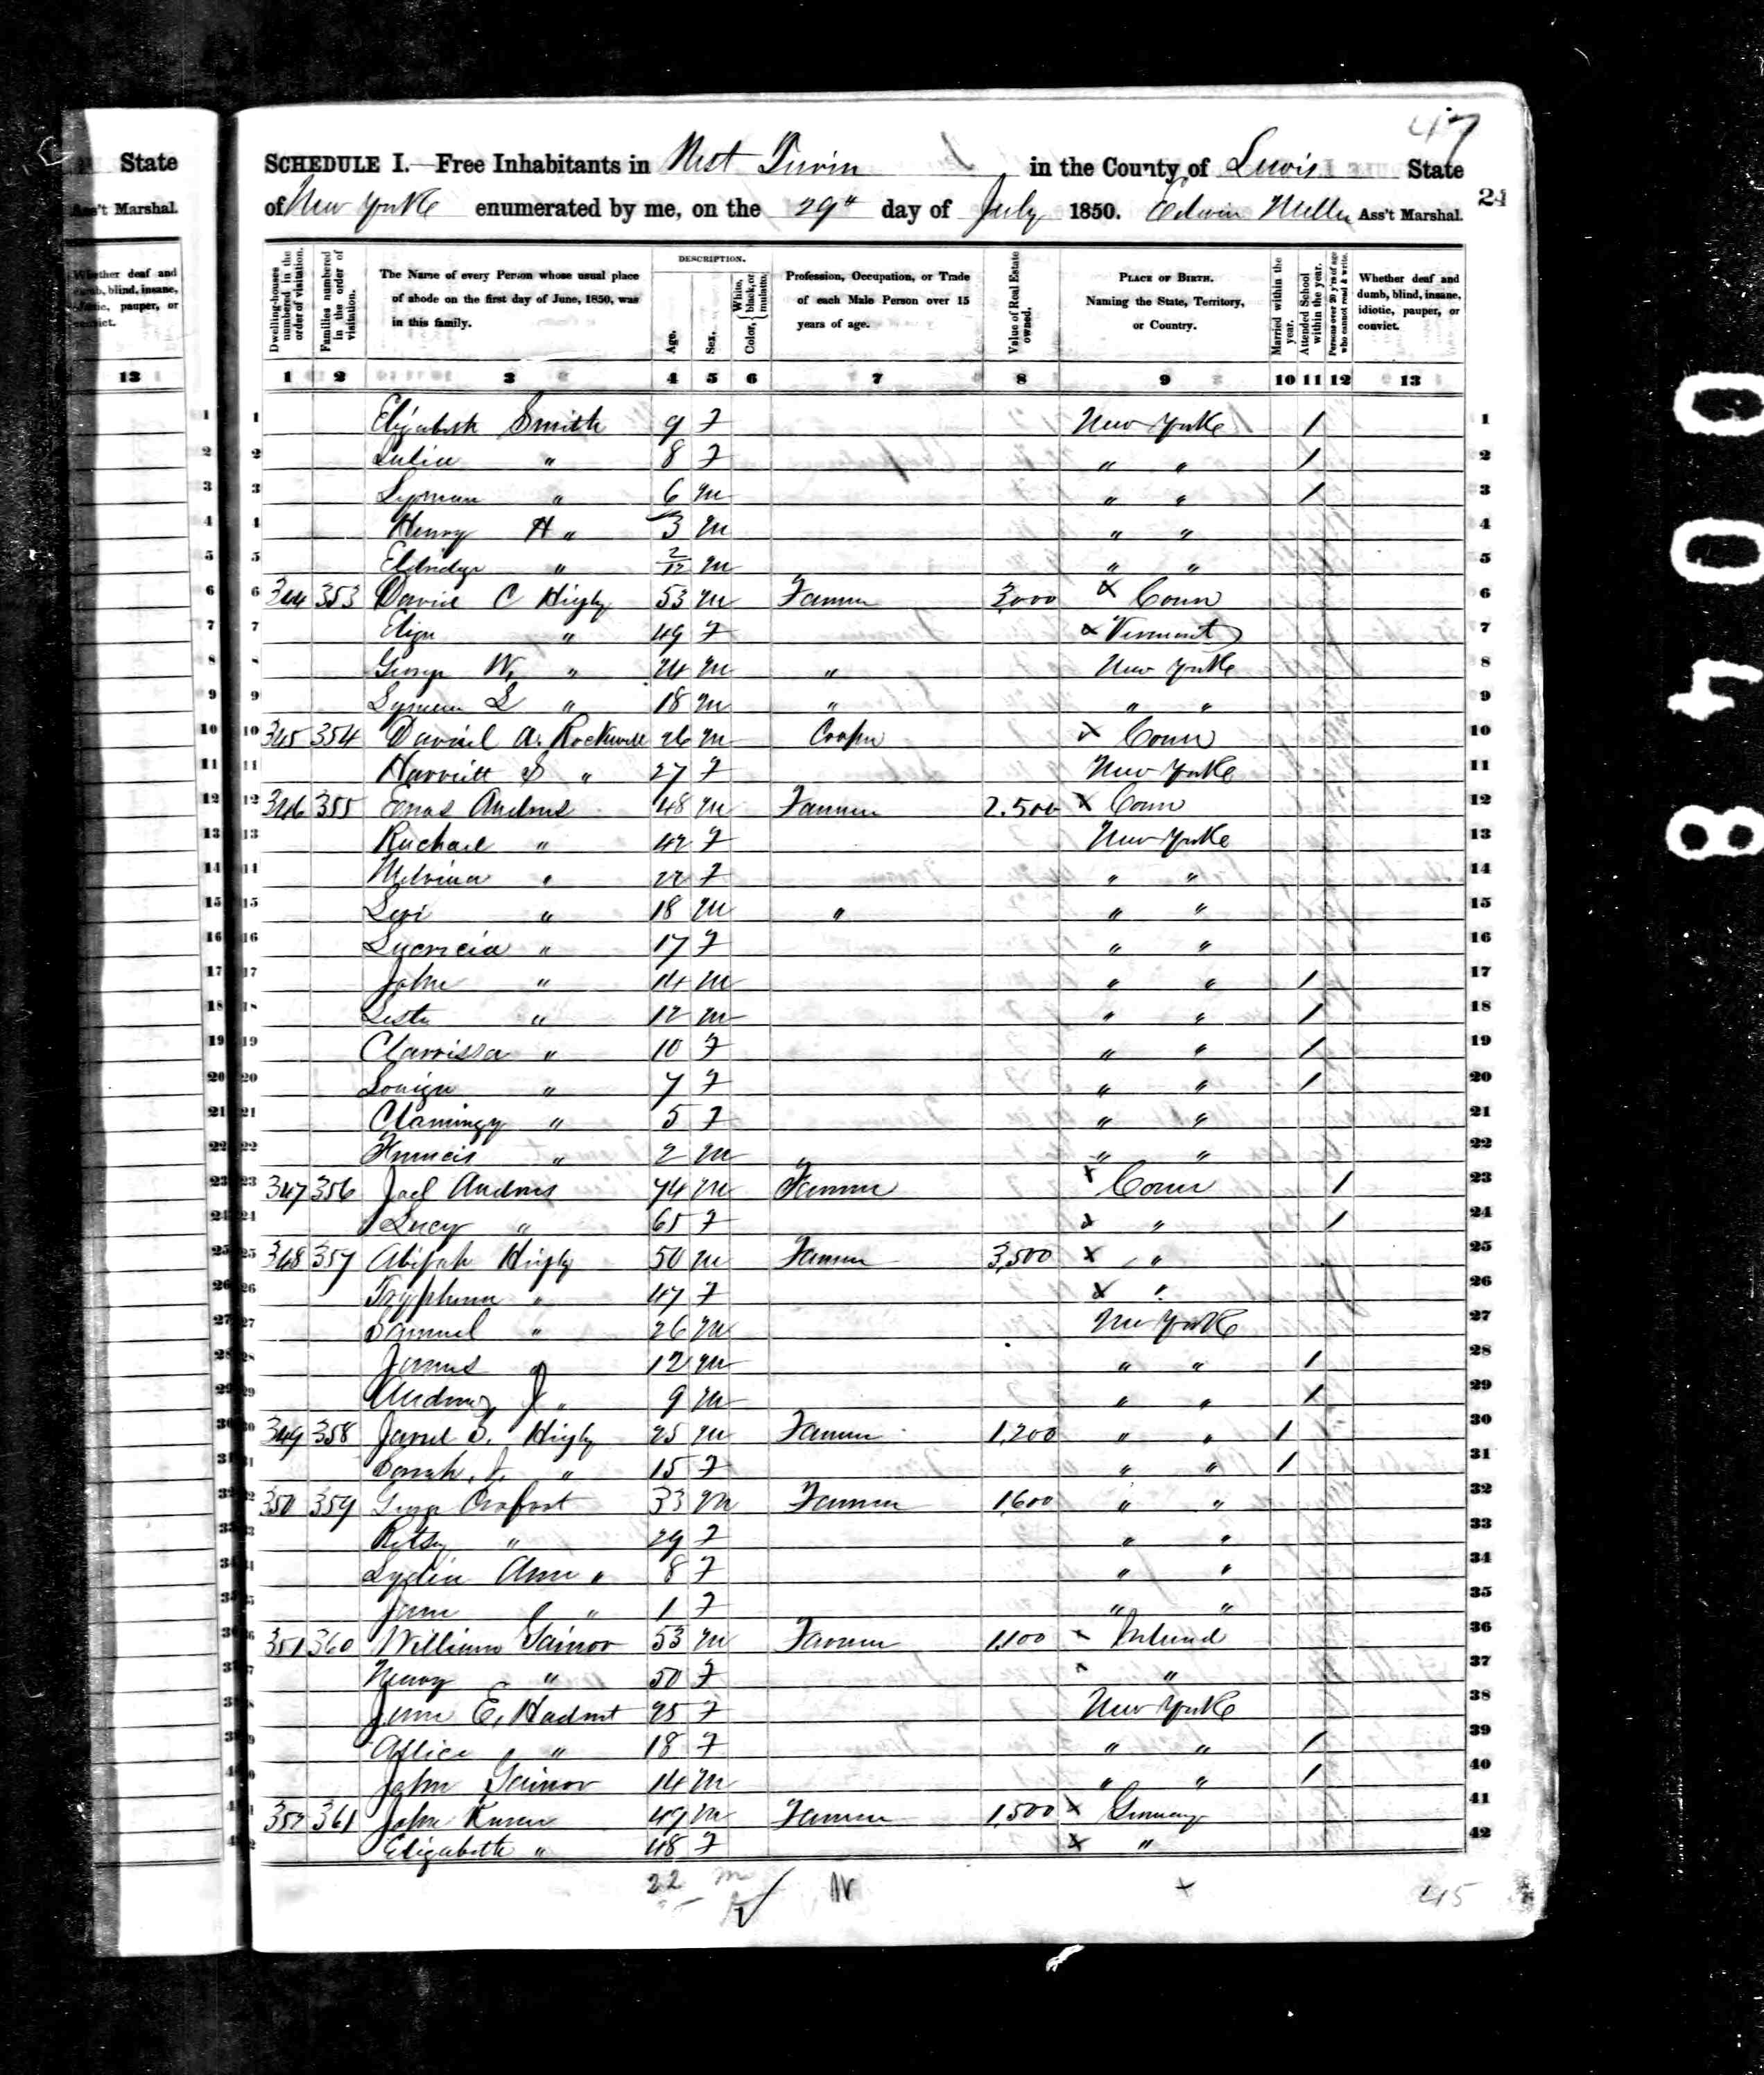 47
State
Ass't Marshal.
Whether deaf and dumb, blind, insane, idiotic, pauper, or convict.
13
SCHEDULE I.—Free Inhabitants in West Turin in the County of Lewis State
of New York enumerated by me, on the 29" day of July 1850. Edwin Miller Ass't Marshal.
24
Dwelling-houses numbered in the order of visitation.
Families numbered in the order of visitation.
The Name of every Person whose usual place of abode on the first day of June, 1850, was in this family.
DESCRIPTION.
Age.
Sex.
Color, White, black, or mulatto.
Profession, Occupation, or Trade of each Male Person over 15 years of age.
Value of Real Estate owned.
PLACE OF BIRTH. Naming the State, Territory, or Country.
Married within the year.
Attended School within the year.
Persons over 20 y'rs of age who cannot read & write.
Whether deaf and dumb, blind, insane, idiotic, pauper, or convict.
1 2 3 4 5 6 7 8 9 10 11 12 13
1 Elizabeth Smith 9 F New York / 1
2 Julia " 8 F " " / 2
3 Lyman " 6 M " " / 3
4 Henry H " 3 M " " 4
5 Eldridge " 2/12 M " " 5
6 344 353 C Higby 53 M Farmer 3,000 x Conn 6
7 Eliza " 49 F x Vermont 7
8 George W. " 24 M " New York 8
9 Lyman L " 18 M " " " 9
10 345 354 Daniel A. Rockwell 26 M Cooper x Conn 10
11 Harriett S " 27 F New York 11
12 346 355 Enos Andrus 48 M Farmer 2.500 x Conn 12
13 Rachael " 42 F New York 13
14 Melvina " 22 F " " 14
15 Levi " 18 M " " " 15
16 Lucricia " 17 F " " 16
17 John " 14 M " " / 17
18 Lester " 12 M " " / 18
19 Clarrissa " 10 F " " / 19
20 Louiza " 7 F " " / 20
21 " 5 F " " 21
22 Francis " 2 M " " " 22
23 347 356 Joel Andrus 74 M Farmer x Conn / 23
24 Lucy " 65 F x " / 24
25 348 357 Abijah Higby 50 M Farmer 3,500 x " 25
26 Tryphena " 47 F x " 26
27 Samuel " 26 M New York 27
28 James " 12 M " " / 28
29 Andrew J " 9 M " " / 29
30 349 358 S. Higby 25 M Farmer 1,200 " " / 30
31 Sarah J. " 15 F " " / 31
32 350 359 George 33 M Farmer 1600 " " 32
33 Betsy " 29 F " " 33
34 Lydia Ann " 8 F " " 34
35 Jane " 1 F " " 35
36 351 360 William Gainor 53 M Farmer 1,100 x Ireland 36
37 " 50 F x " 37
38 Jane E. 25 F New York 38
39 Allice " 18 F " " / 39
40 John Gainor 14 M " " / 40
41 352 361 John 49 M Farmer 1,500 x Germany 41
42 Elizabeth " 48 F x " 42
22 m
45
84004